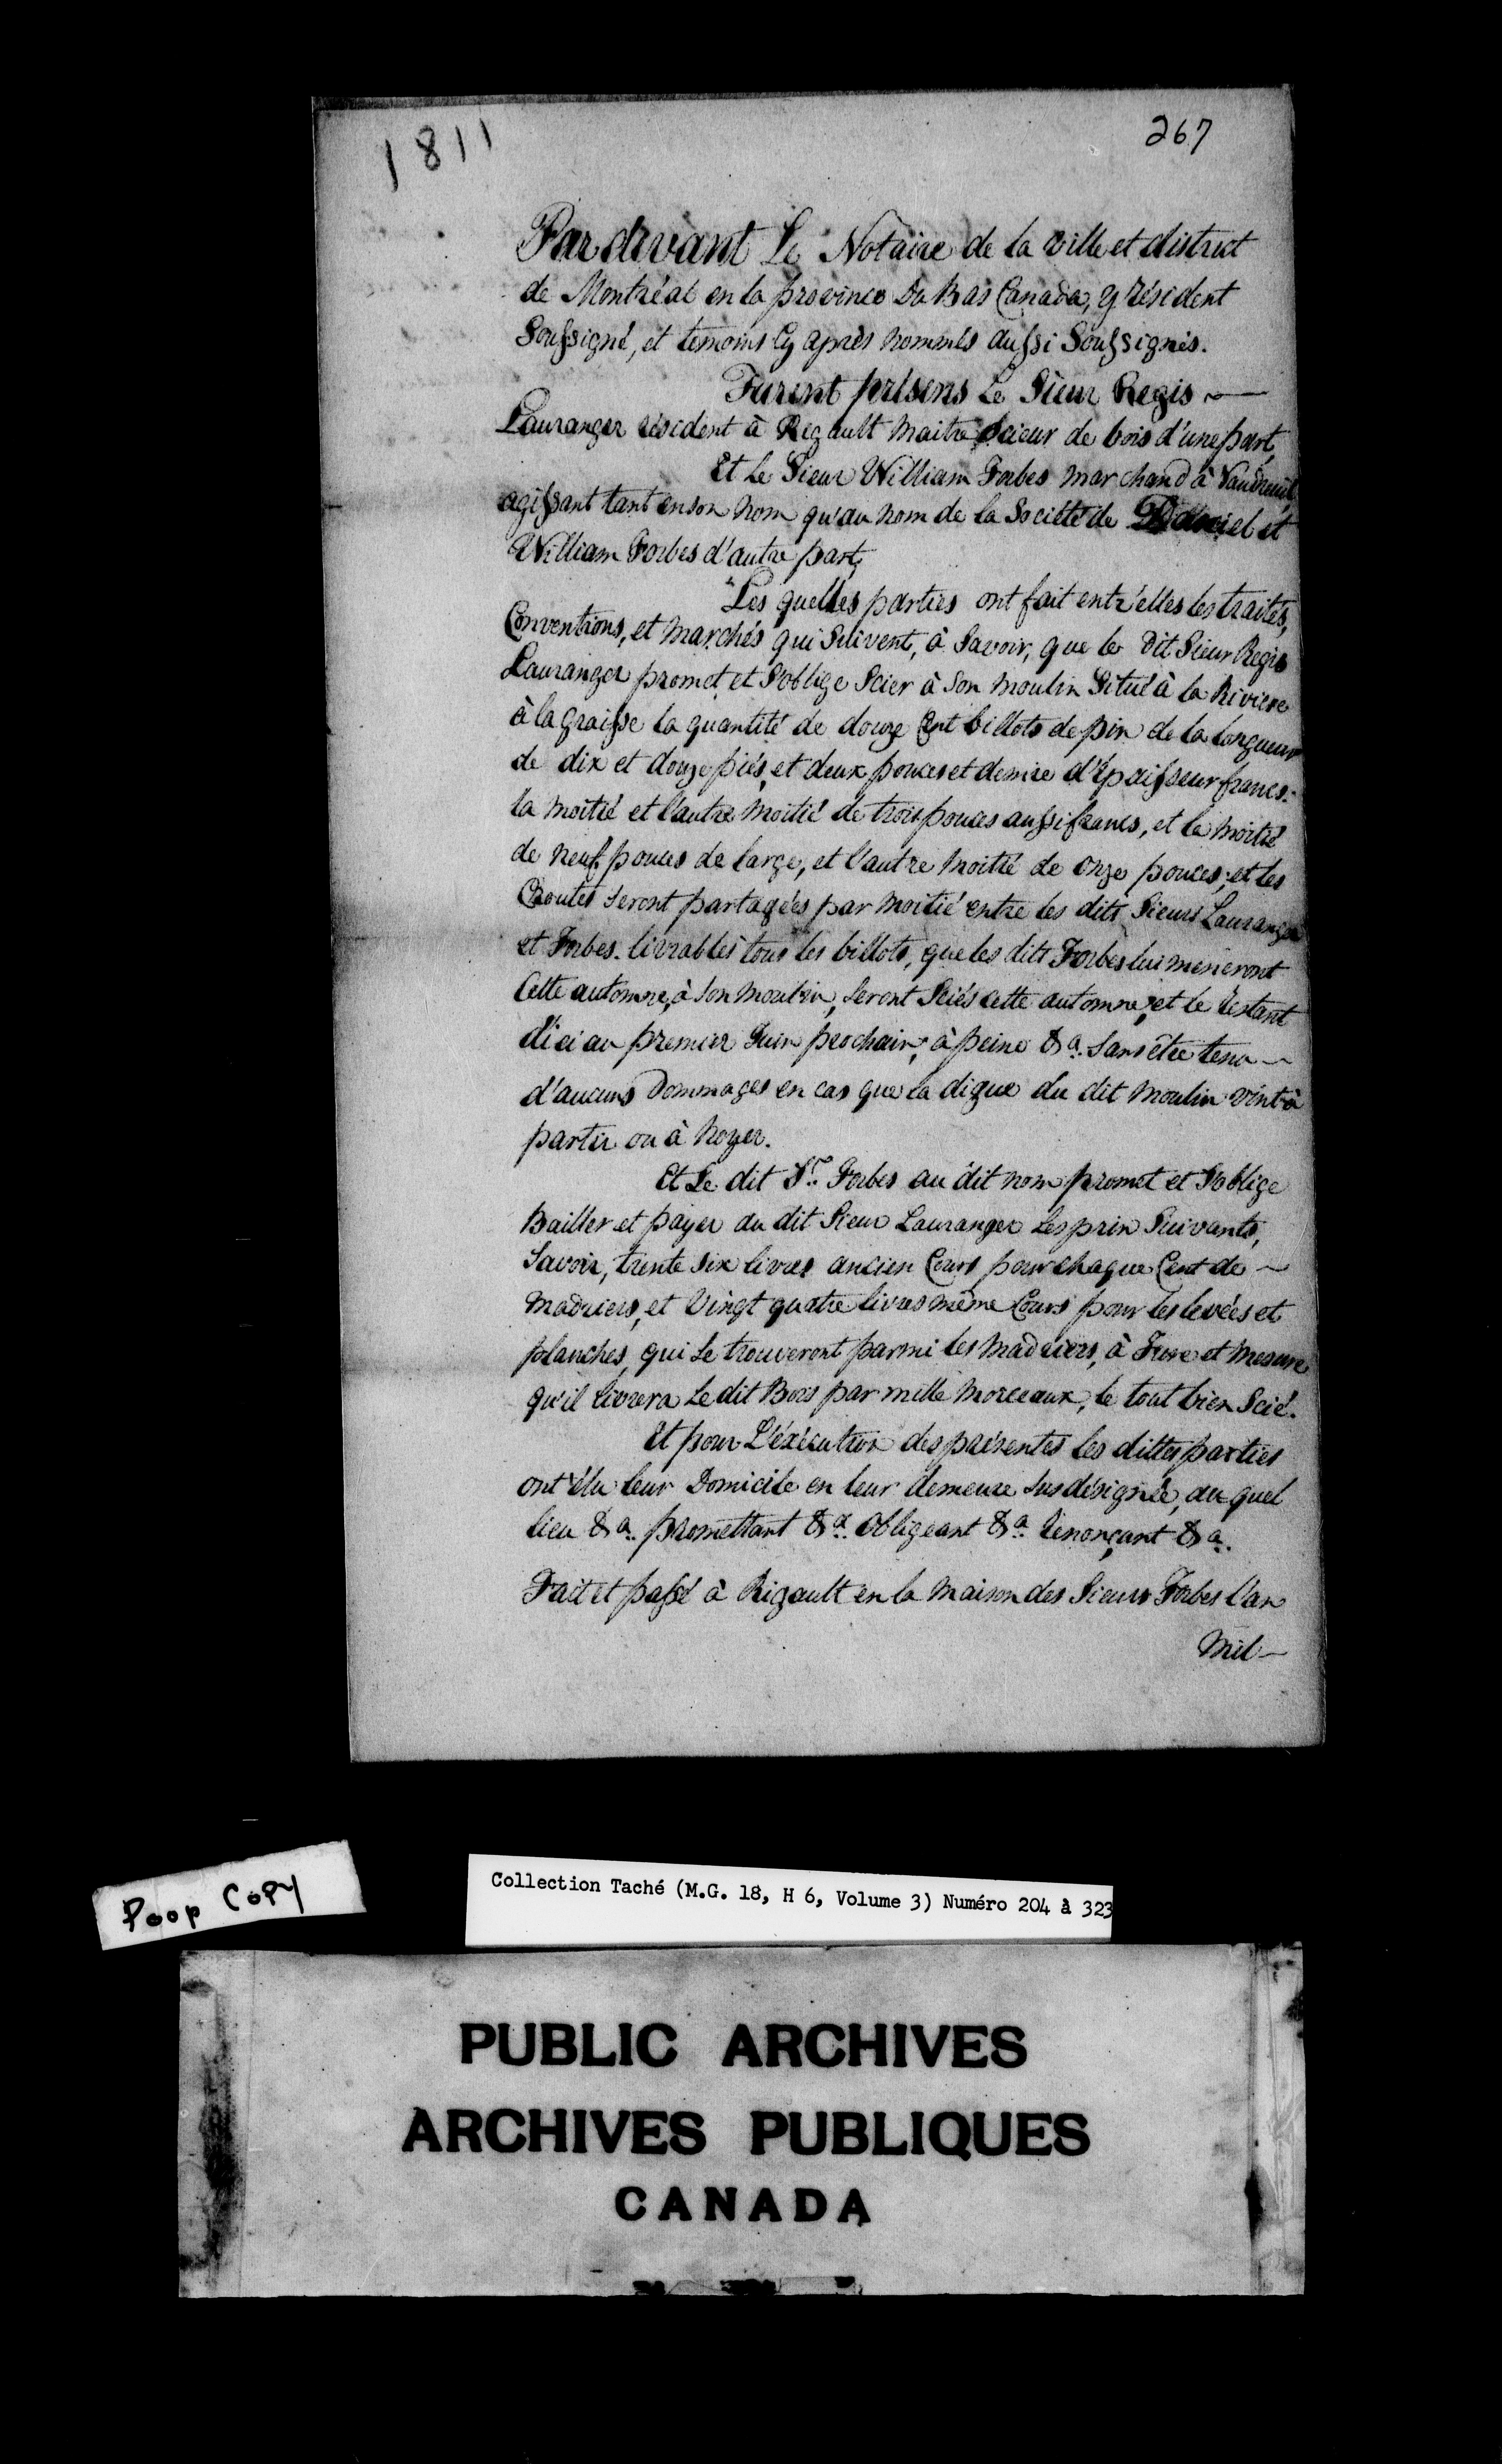 1811
267
Pardevant Le Notaire de la ville et district
de Montréal en la province Du Bas Canada, y résident
Soussigné, et temoins Cy après nommés aussi Soussignés.
Furent présens Le Sieur Regis
Lauranger résident à Rigault maitre Scieur de bois d'une part,
Et Le Sieur William Forbes marchand à Vaudreuil
agissant tant en son nom qu'au nom de la Société de Daniel et
William Forbes d'autre part,
Les quelles parties ont fait entr'elles les traités,
Conventions, et marchés qui Suivent, à Savoir, que le Dit Sieur Regis
Lauranger promet et S'oblige Scier à Son moulin Situé à la Riviere
à la Graisse la quantité de douze Cent billots de pin de la longueur
de dix et douze piés, et deux pouces et demie d'Epaisseur francs.
la moitié et l'autre moitié de trois pouces aussi francs, et la moitié
de neuf pouces de large, et l'autre moitié de onze pouces, et les
Croutes seront partagées par moitié entre les dits Sieurs Lauranger
et Forbes. livrables tous les billots, que les dits Forbes lui meneront
Cette automne, à Son moulin, seront Sciés cette automne, et le restant
d'ici au premier Juin prochain, à peine &a. Sans être tenu
d'aucuns Dommages en cas que la digue du dit moulin vint à
partir ou à noyer.
Et Le dit Sr. Forbes au dit nom promet et S'oblige
Bailler et payer au dit Sieur Lauranger Les prix Suivants,
Savoir, trente six livres ancien Cours pour chaque Cent de
madriers, et Vingt quatre livres même Cours pour les levées et
planches, qui Se trouveront parmi les madriers, à Fure et mesure
qu'il livrera Le dit Bois par mille morceaux, le tout bien Scié.
Et pour L'éxécution des présentes les dittes parties
ont élu leur Domicile en leur demeure Susdésignée, au quel
lieu &a. promettant &a. Obligeant &a. renonçant &a.
Fait et passé à Rigault en la maison des Sieurs Forbes l'an
Mil
Poop Copy
Collection Taché (M.G. 18, H 6, Volume 3) Numéro 204 à 323
PUBLIC ARCHIVES
ARCHIVES PUBLIQUES
CANADA